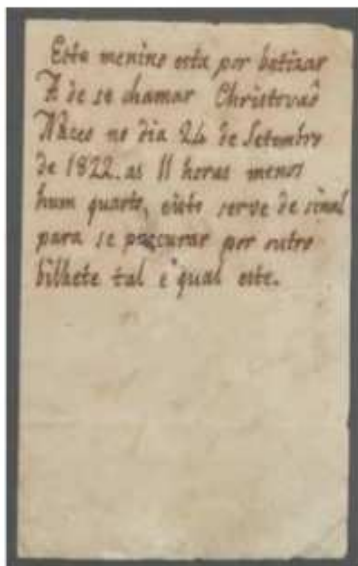 Este menino esta por batizar
A de se chamar Christovaõ
Naceo no dia 24 de Setembro
de 1822. as 11 horas menos
hum quarto, eisto serve de sinal
para se porcurar por outro
bilhete tal e qual este.